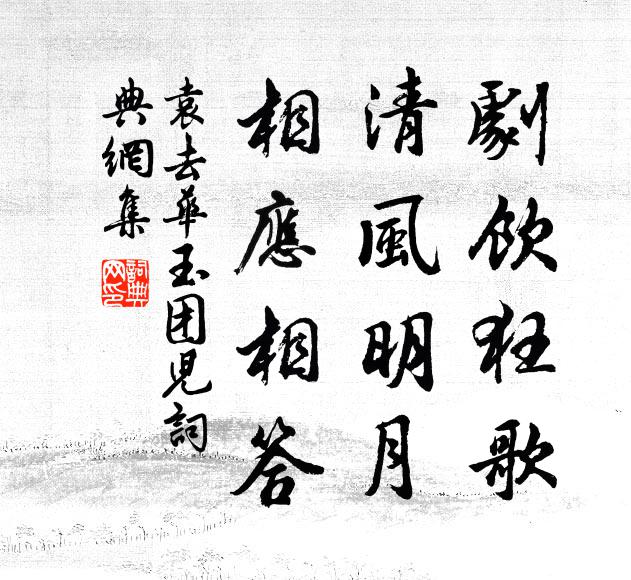 劇飲狂歌
清風明月
相應相答
袁去華玉团児詞
典網集
詞典
网印